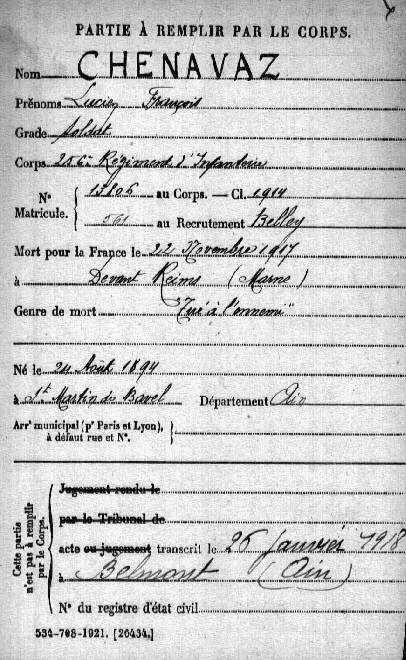 PARTIE À REMPLIR PAR LE CORPS.
Nom CHENAVAZ
Prénoms Lucien François
Grade soldat
Corps 256e Régiment d'Infanterie
N° Matricule. { 13806 au Corps. — Cl. 1914
561 au Recrutement Belley
Mort pour la France le 22 Novembre 1917
à Devant Reims (Marne)
Genre de mort "Tué à l'ennemi"
Né le 24 Août 1894
à St Martin de Bavel Département Ain
Arrt municipal (pr Paris et Lyon),
à défaut rue et N°.
Cette partie n'est pas à remplir par le Corps.
Jugement rendu le
par le Tribunal de
acte ou jugement transcrit le 26 Janvier 1918
à Belmont (Ain)
N° du registre d'état civil
534-708-1921. [26434.]